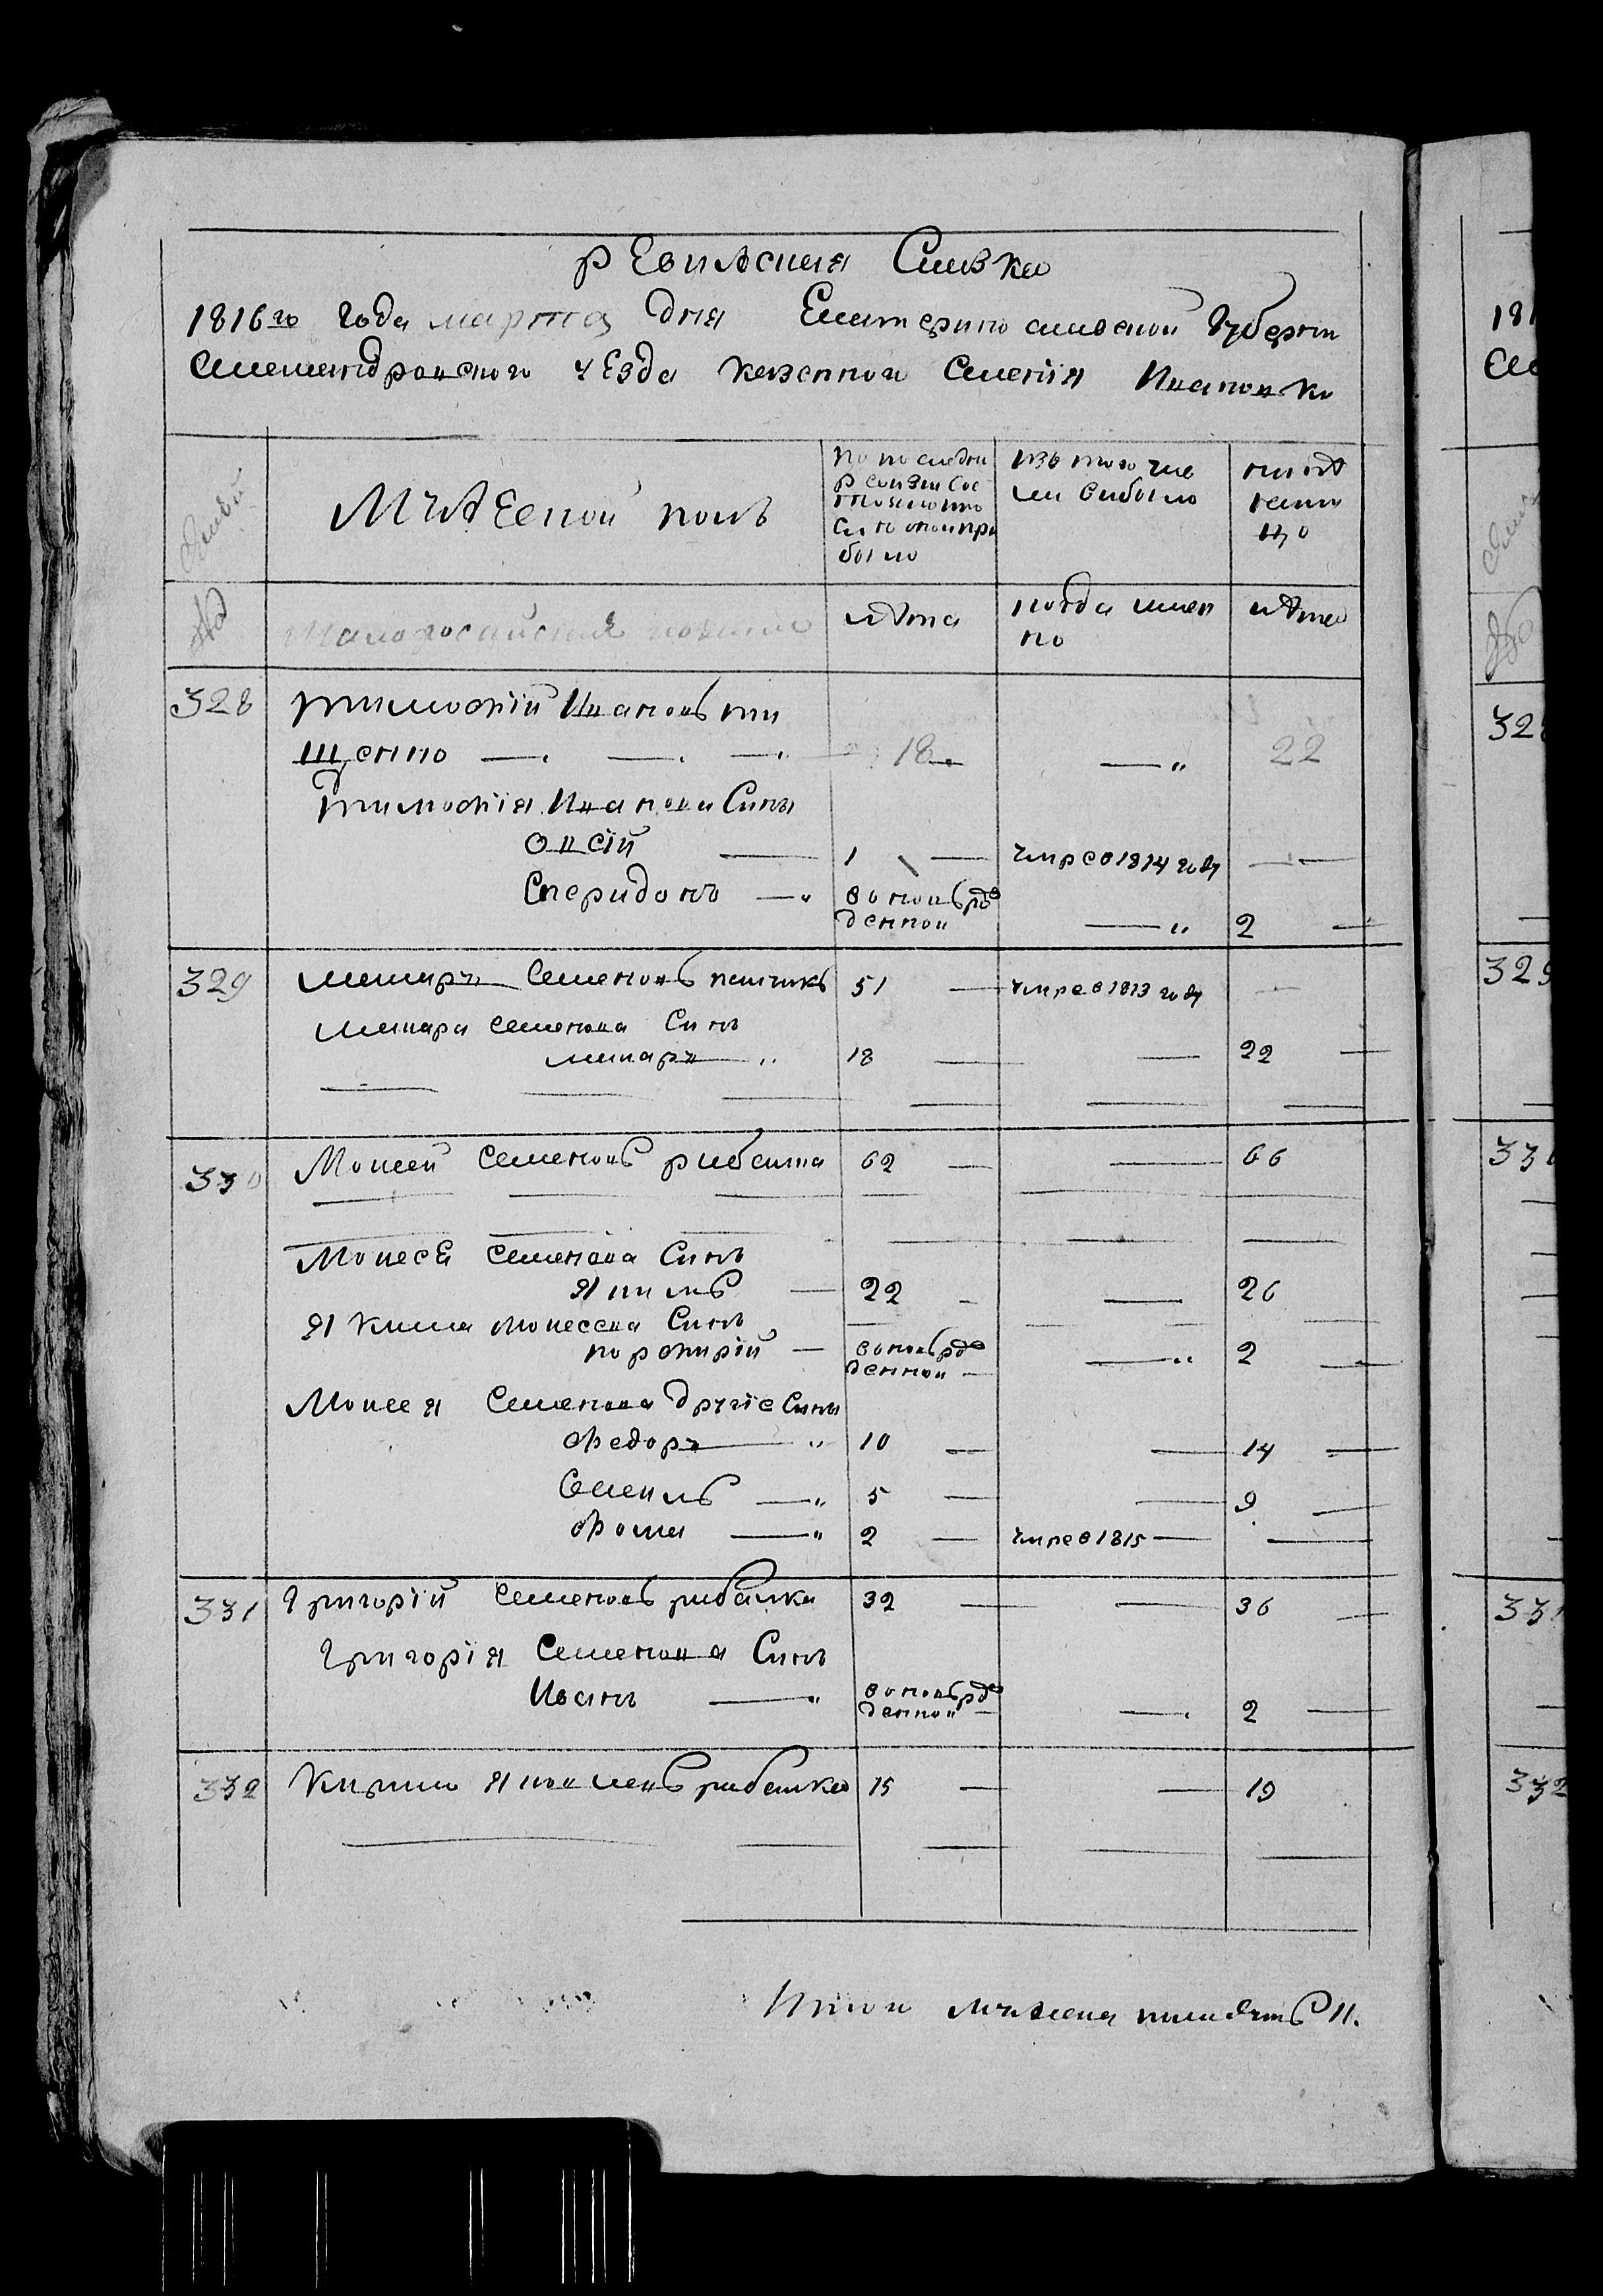 ревизская Сказка
1816го года марта дня Екатеринославской губерни
Александровского уезда казенного Селения Ивановки
Семьи
Мужеской полъ
по последней ревизии состояло и после оной прибыло
изъ того числа выбыло
ныне на лицо
№
малоросийския козаки
лѣта
когда именно
лѣта
328
Тимофій Ивановъ
18
—„
22
Тимофія Иванова Сины
Овсій — 1 — умре в 1814 году —
Спиридонъ —„ вновь рож
денной —„ 2 —
329
Лазаръ Семеновъ 51 — умре в 1813 году —
Лазара Семенова Синъ
Лазаръ „ 18 — — 22 —
330
Мойсей Семеновъ рибалка 62 — — 66
Мойсея Семенова Синъ
Якимъ — 22 — — 26
Якима Мойсеева Синъ
порфирій — вновь рож
денной — —„ 2 —
Мойсея Семенова другіе Сины
Федоръ „ 10 — — 14 —
Семенъ —„ 5 — — 9 —
Фома —„ 2 — умре в 1815 — —
331
Григорій Семеновъ рибалка 32 — — 36 —
Григорія Семенова Синъ
Иванъ —„ вновь рож
денной — — 2 —
332
Кирило Яковлевъ рибалка 15 — — 19
Итого мужеска
181
328
329
330
331
332